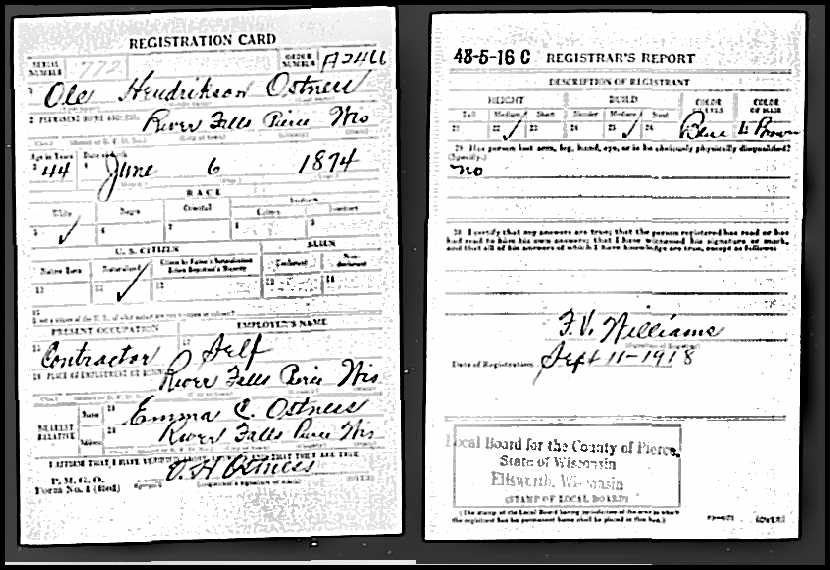 REGISTRATION CARD
SERIAL NUMBER 772 ORDER NUMBER A2466
1 Ole Hendrikson Ostness
2 PERMANENT HOME ADDRESS
River Falls Pierce Wis
Age in Years Date of Birth
3 44 4 June 6 1874
RACE
White Negro Oriental Indian
Citizen
5 ✓ 6 7 8 9
U. S. CITIZEN ALIEN
Native Born Naturalized Citizen by Father's Naturalization Before Registrant's Majority Declarant Non-declarant
10 11 ✓ 12 13 14
15
PRESENT OCCUPATION EMPLOYER'S NAME
16 Contractor 17 Self
18 PLACE OF EMPLOYMENT OR BUSINESS
River Falls Pierce Wis
NEAREST RELATIVE
Name 19 Emma C. Ostness
Address 20 River Falls Pierce Wis
I AFFIRM THAT I HAVE VERIFIED ABOVE ANSWERS AND THAT THEY ARE TRUE
P. M. G. O.
Form No. 1 (Red)
O. H. Ostness
48-5-16 C REGISTRAR'S REPORT
DESCRIPTION OF REGISTRANT
HEIGHT BUILD COLOR OF EYES COLOR OF HAIR
Tall Medium Short Slender Medium Stout
21 22 ✓ 23 24 25 ✓ 26 27 Blue 28 Brown
29 Has person lost arm, leg, hand, eye, or is he obviously physically disqualified?
(Specify.)
no
30 I certify that my answers are true; that the person registered has read or has
had read to him his own answers; that I have witnessed his signature or mark,
and that all of his answers of which I have knowledge are true, except as follows:
F. V. Williams
(Signature of Registrar)
Date of Registration Sept 11-1918
Local Board for the County of Pierce,
State of Wisconsin
Ellsworth, Wisconsin
(STAMP OF LOCAL BOARD)
(The stamp of the Local Board having jurisdiction of the area in which
the registrant has his permanent home shall be placed in this box.)
(OVER)